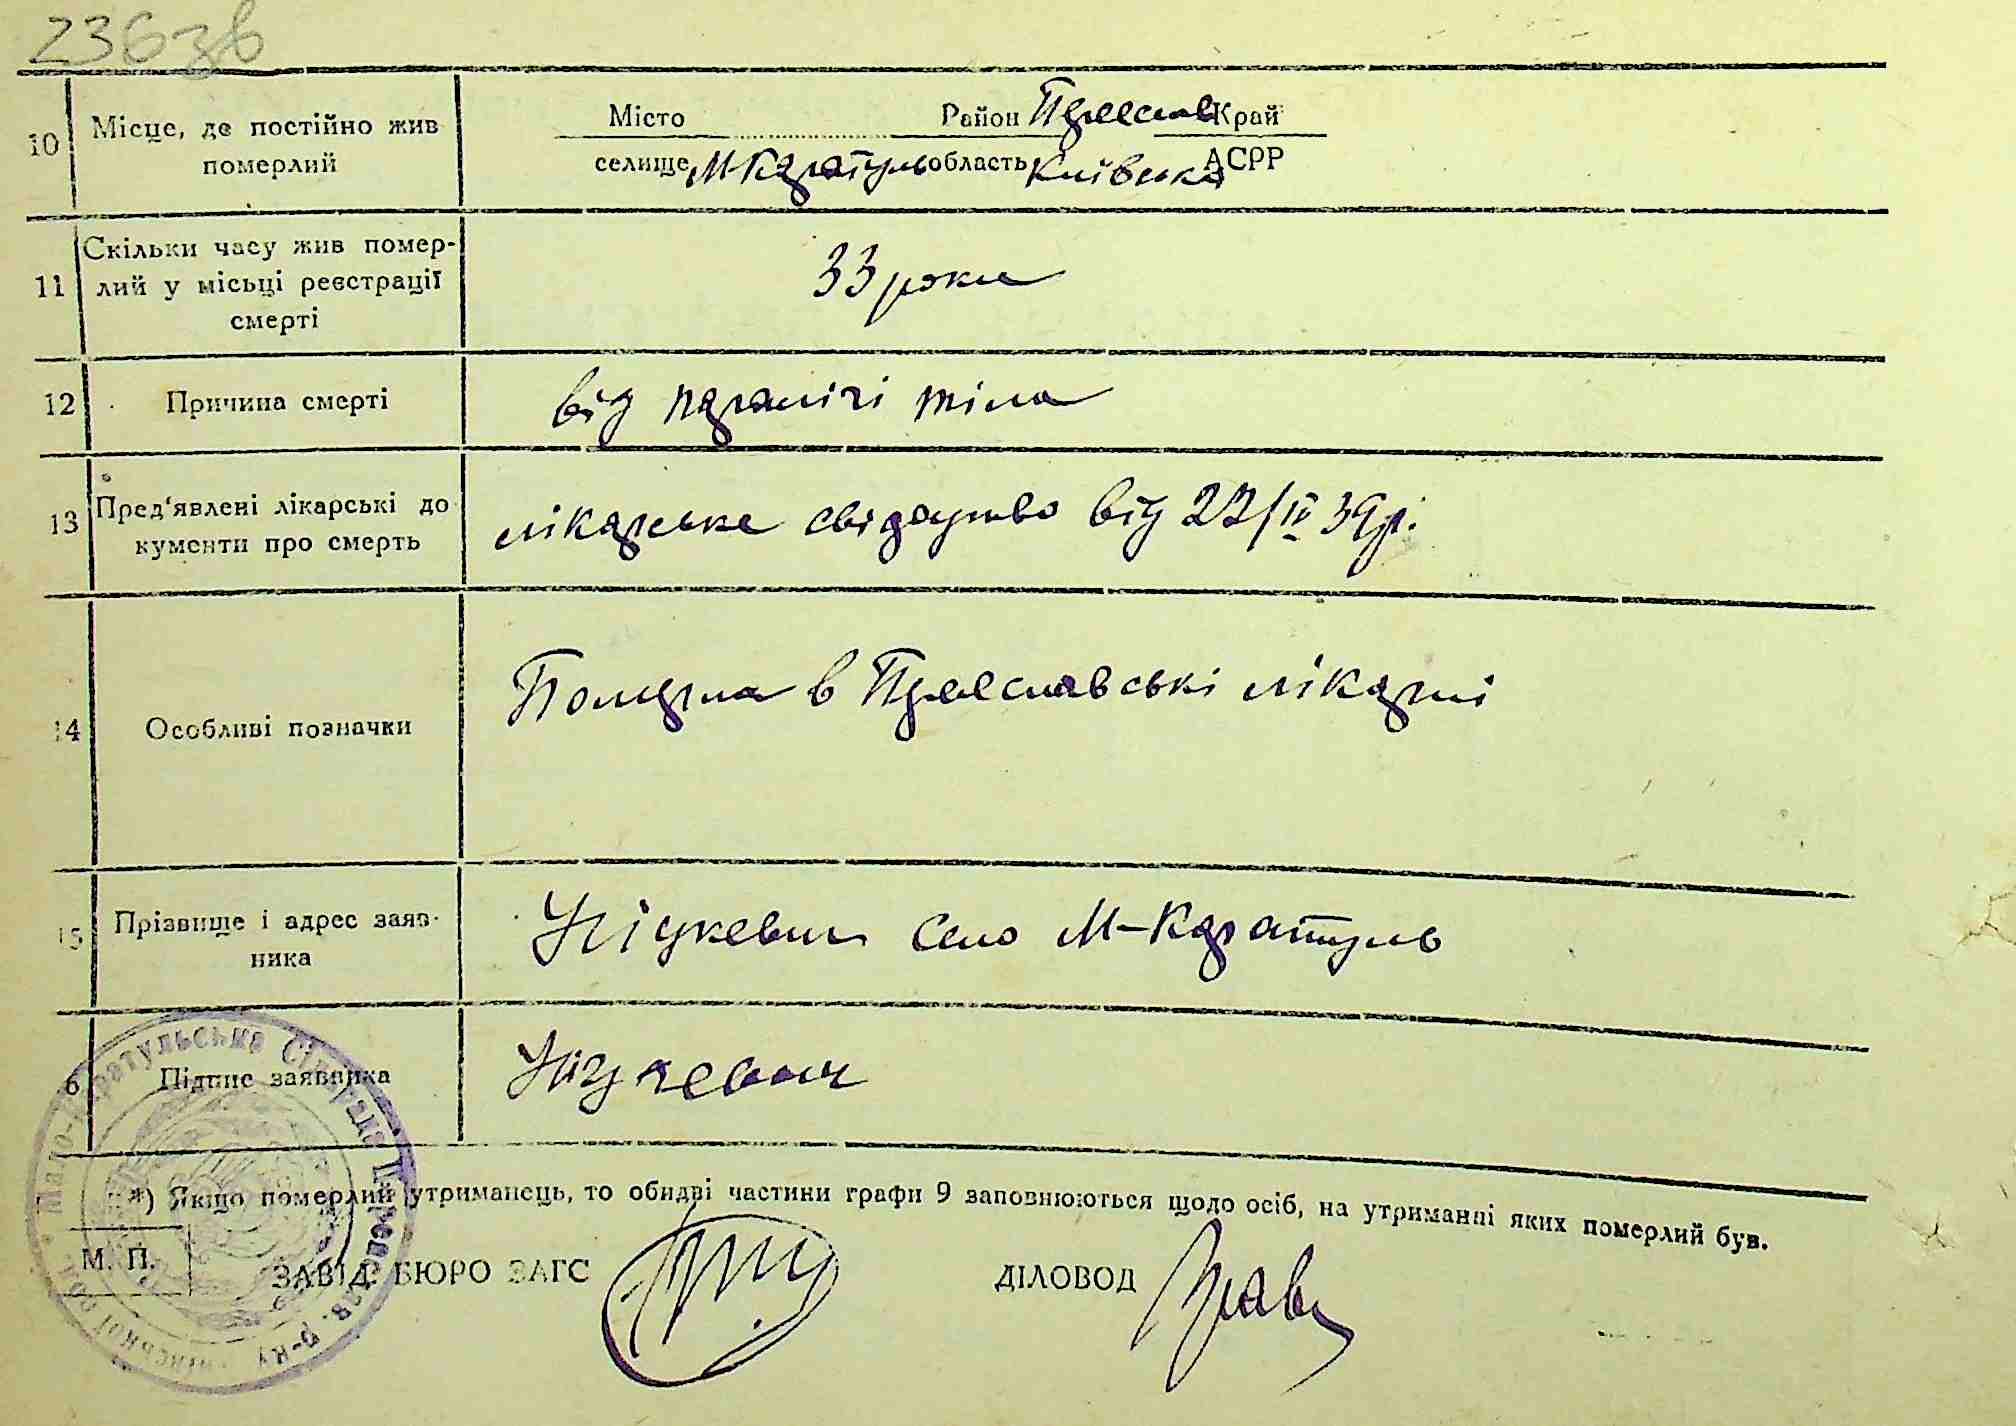 236зв
10 Місце, де постійно жив померлий
Місто Район Переяслав Край
селище М-Каратуль область Київська АСРР
11 Скільки часу жив помер-
лий у місьці реєстрації
смерті
33 роки
12 Причина смерті від паралічі тіла
13 Пред'явлені лікарські до
кументи про смерть
лікарське свідоцтво від 22/IV 39р.
14 Особливі позначки
Померла в Переславські лікарні
15 Прізвище і адрес заяв-
ника
село М-Каратуль
6 Підпис заявника
*) Якщо померлий утриманець, то обидві частини графи 9 заповнюються щодо осіб, на утриманні яких померлий був.
М. П.
ЗАВІД. БЮРО ЗАГС ДІЛОВОД
Мало-Каратульська Сільрада Переяслав. р-ну Київської об.